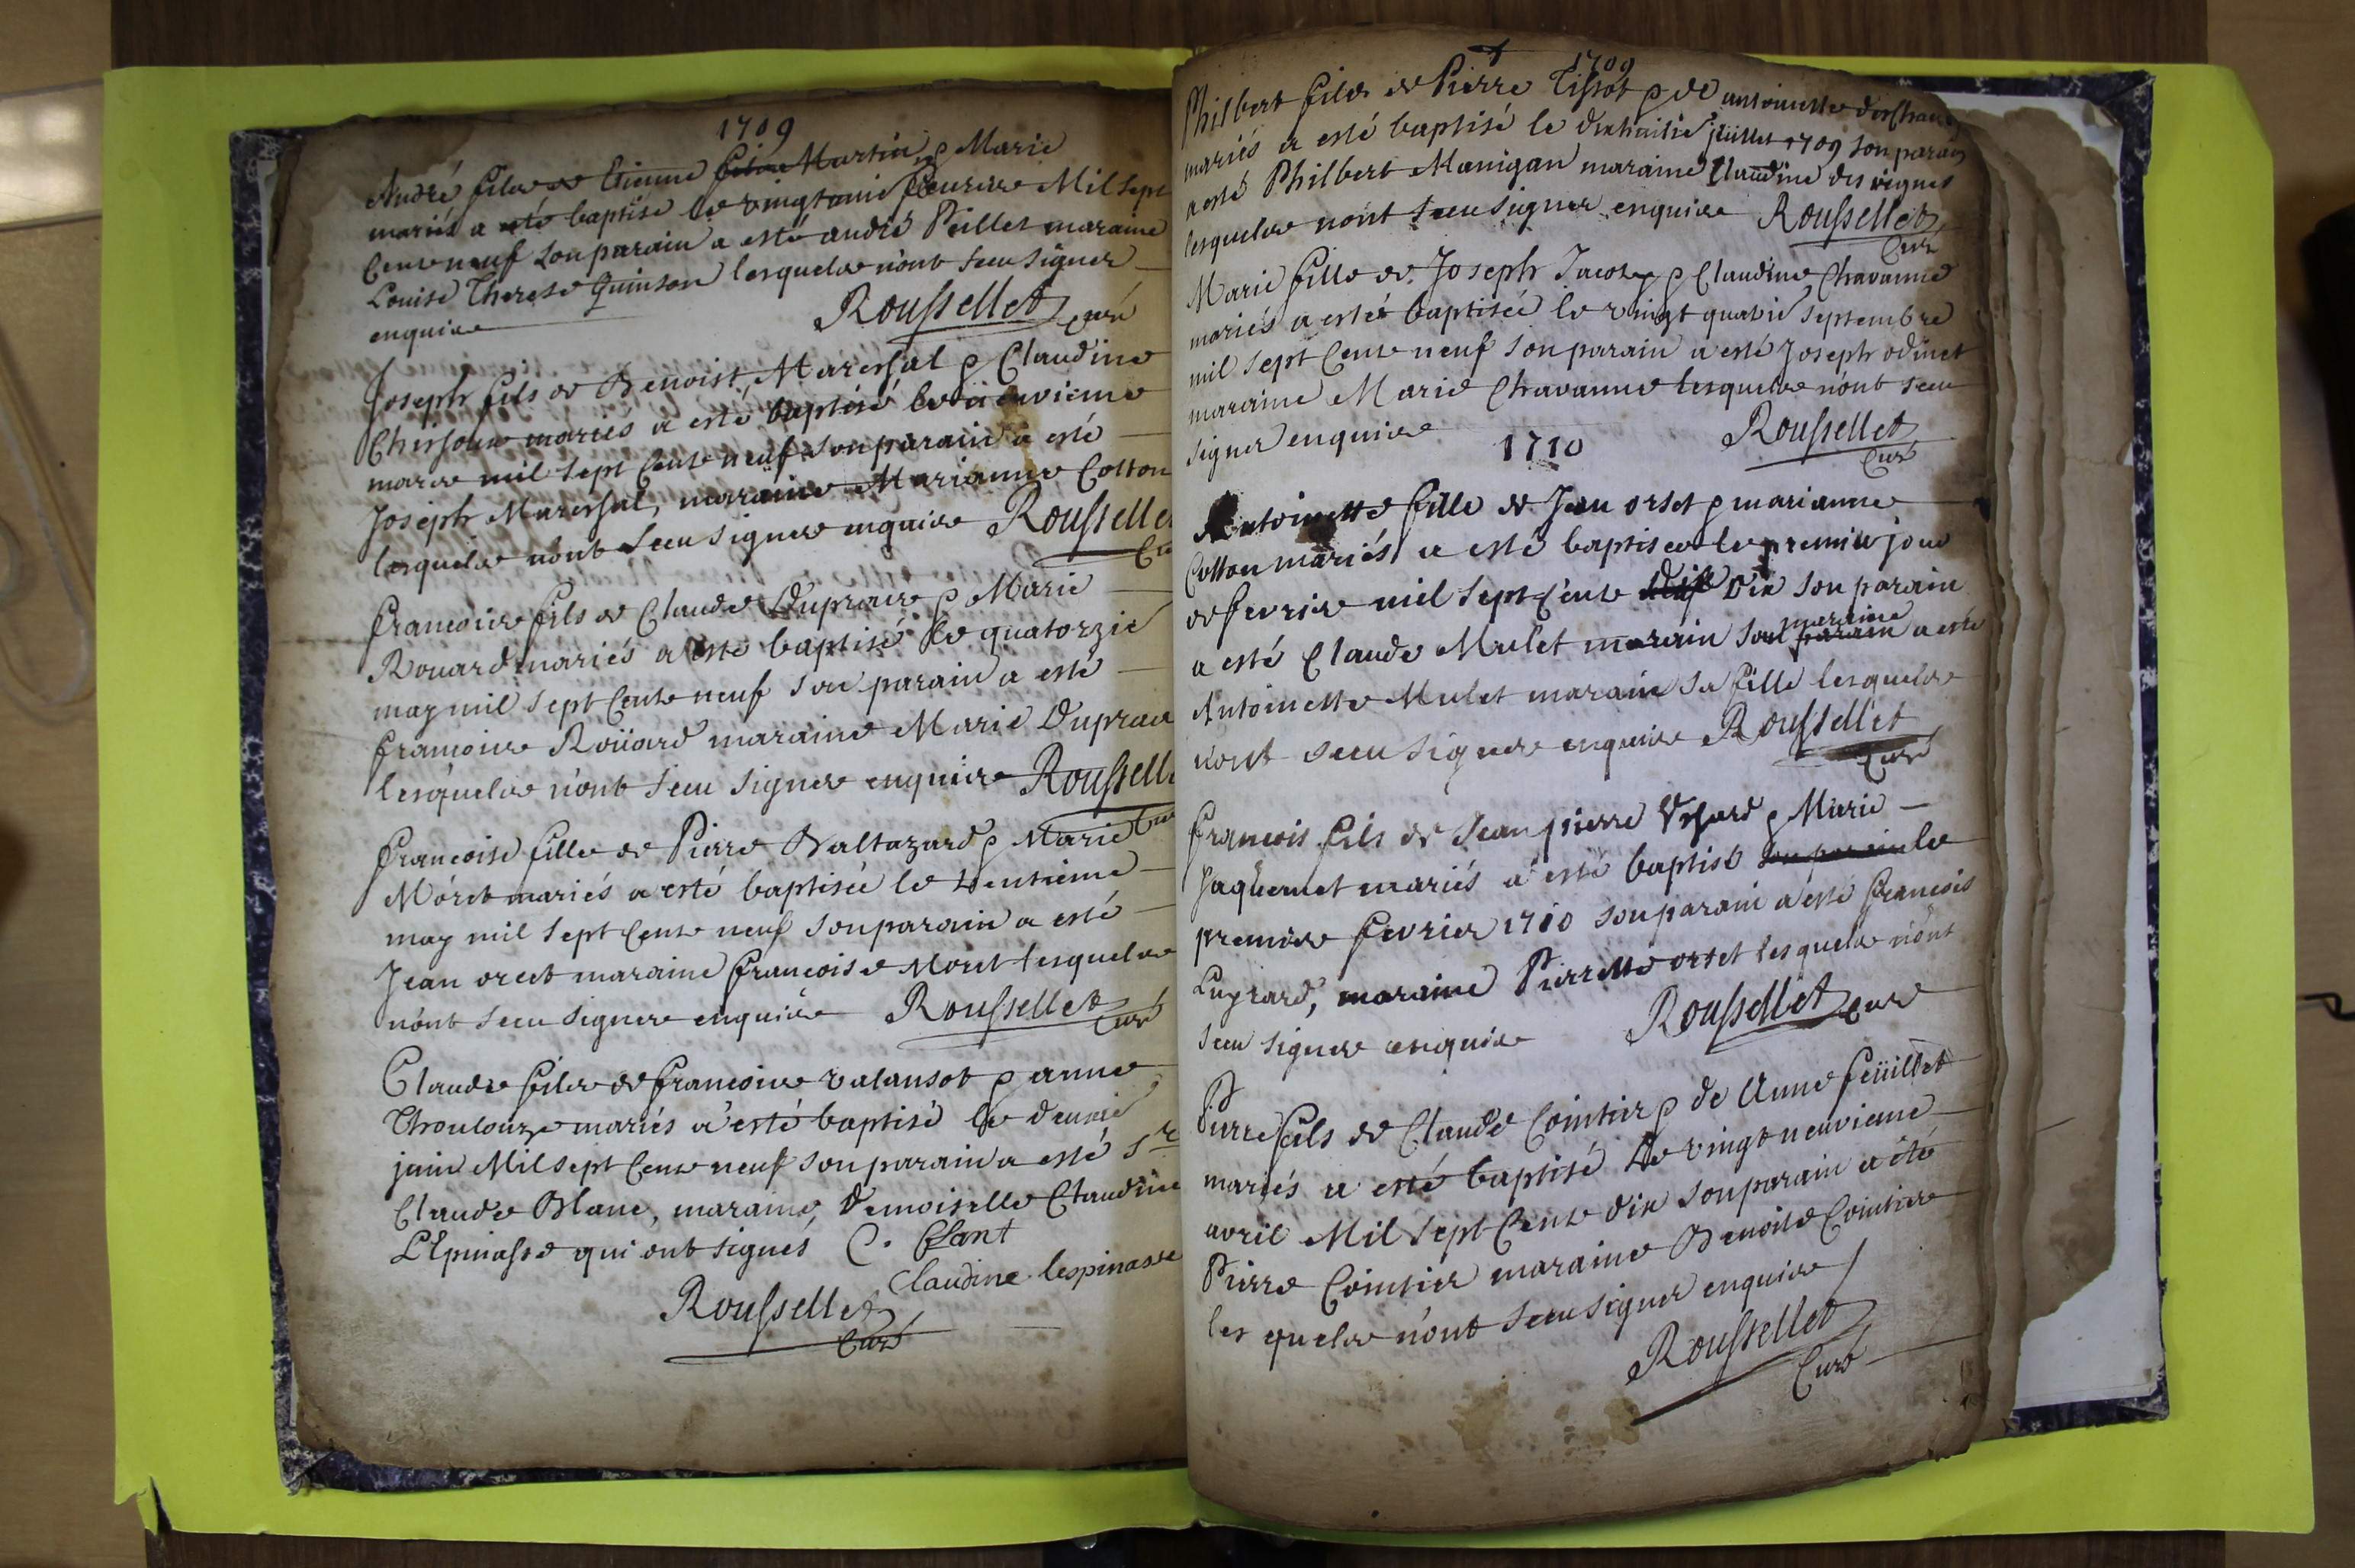 1709
André fils de Etienne Martin & Marie
mariés a esté baptisé le vingt fevrier Mil sept
Cent neuf son parain a esté andré Peillet maraine
Louise Therese Quinson lesquels n'ont sceu signer
enquis
Roussellet curé
Joseph fils de Benoist Mareschal & Claudine
mariés a esté baptisé le neuvieme
mars mil sept Cent neuf son parain a esté
Joseph Mareschal, maraine Marianne Cotton
lesquels n'ont sceu signer enquis Rousselle
Cu
francois fils de Claude Dupraz & Marie
Rouard mariés a esté baptisé le quatorzié
may mil sept Cent neuf son parain a esté
francois Roüard maraine Marie Dupraz
lesquels n'ont sceu signer enquis Roussell
Cur
francoise fille de Pierre Baltazard & Marie
Moret mariés a esté baptisée le trentieme
may mil sept Cent neuf son parain a esté
Jean orcet maraine francoise Moret lesquels
n'ont sceu signer enquis Roussellet
Curé
Claude fils de francois valansot & anne
Thoulouze mariés a esté baptisé le deuxié
juin Mil sept Cent neuf son parain a esté Sr
Claude Blanc, maraine, Demoiselle Claudine
L'Epinasse qui ont signés C. Blant
Claudine lespinasse
Roussellet
Curé
1709
Philbert fils de Pierre Tissot & de antoinette
mariés a esté baptisé le dixhuitié juillet 1709 son parain
a esté Philbert Manigan maraine Claudine des vignes
lesquels n'ont sceu signer enquis Roussellet
Curé
Marie fille de Joseph Jacob & Claudine Chavanne
mariés a esté baptisée le vingt quatrié septembre
mil sept Cent neuf son parain a esté Joseph odinet
maraine Marie Chavanne lesquels n'ont sceu
signer enquis Roussellet
Curé
1710
Antoinette fille de Jean orset & marianne
Cotton mariés a esté baptisée le premier jour
de fevrier mil sept Cent Dix son parain
a esté Claude Mulet marain son parain maraine a esté
Antoinette Mulet marain sa fille lesquels
n'ont sceu signer enquis Roussellet
Curé
francois fils de Jean pierre & Marie
Jaquemet mariés a esté baptisé son parain le
premier fevrier 1710 son parain a esté francois
Luyrard, maraine Pierrette orset lesquels n'ont
sceu signer enquis Roussellet Curé
Pierre fils de Claude Cointier & de Anne feüillet
mariés a esté baptisé Le vingt neuvieme
avril Mil sept Cent dix son parain a été
Pierre Cointier maraine Benoite Cointier
les quels n'ont sceu signer enquis
Roussellet
Curé